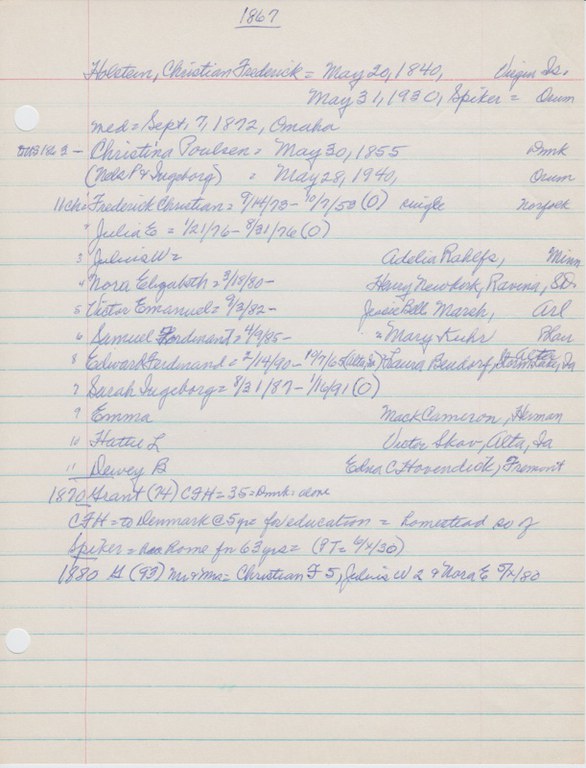 1867
Holstein, Christian Frederick = May 20, 1840, Virgin Is.
May 31, 1930, Spiker = Orum
med = Sept. 7, 1872, Omaha
Christina Poulsen = May 30, 1855 Dmk
(Nels P & Ingeborg) = May 28, 1940, Orum
11 ch: Frederick Christian = 9/14/73 - 10/7/53 (O) single Norfolk
Julia E = 1/21/76 - 8/31/76 (O)
3 Julius W = Adelia Rahlfs, Minn
4 Nora Elizabeth = 3/18/80 - Harry Newkirk, Ravina, SD.
5 Victor Emanuel = 9/3/82 - Jessie Bell Marsh, Arl
6 Samuel Ferdinant = 4/9/85 - = Mary Kuhr Blair
8 Edward Ferdinand = 2/14/90 - Laura Bendorf, Ia
7 Sarah Ingeborg = 8/31/87 - 1/16/91 (O)
9 Emma Mack Cameron, Herman
10 Hattie L Victor Skov, Alta, Ia
11 Dewey B Edna C Hovendick, Fremont
1870 Grant (74) CFH = 35 = Dmk: alone
CFH = to Denmark @ 5 yrs for education = homestead so of
Spiker = Rome for 63 yrs = (PT = 6/x/30)
1880 G (93) Mr & Mrs = Christian F 5, Julius W 2 & Nora E 5/x/80